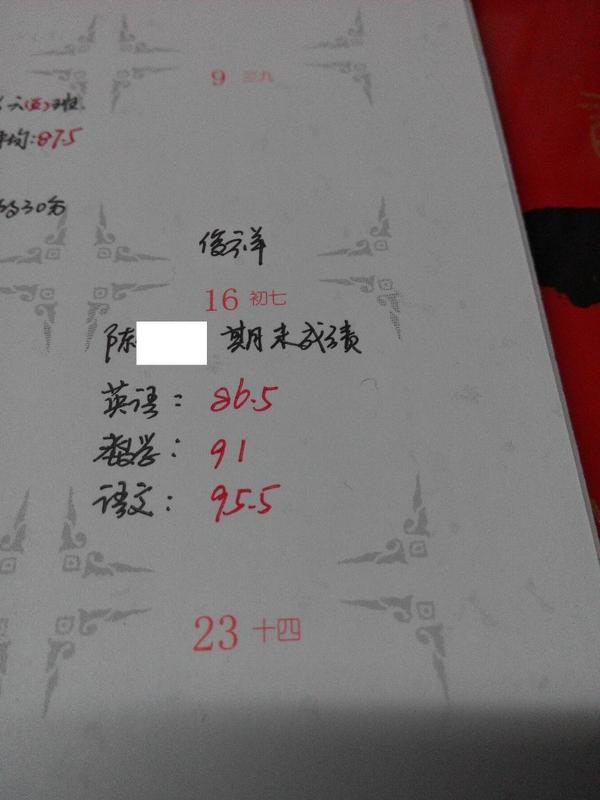 9 三九
六(五)班
平均:87.5
的30分
俊祥
16 初七
陈 期末成绩
英语: 86.5
数学: 91
语文: 95.5
23 十四